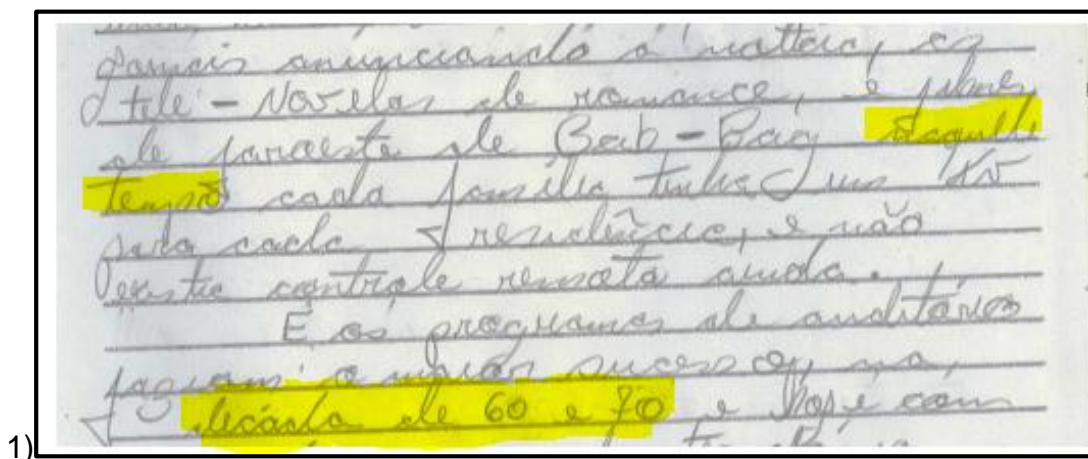 jornais anunciando a notícia, as
tele-Novelas de romance, e filmes
de faroeste de Bab-Bag daquele
tempo cada família tinha um TV
para cada residência, e não
existia controle remoto ainda.
E os programas de auditórios
faziam o maior sucesso, na
década de 60 e 70 e hoje com
1)